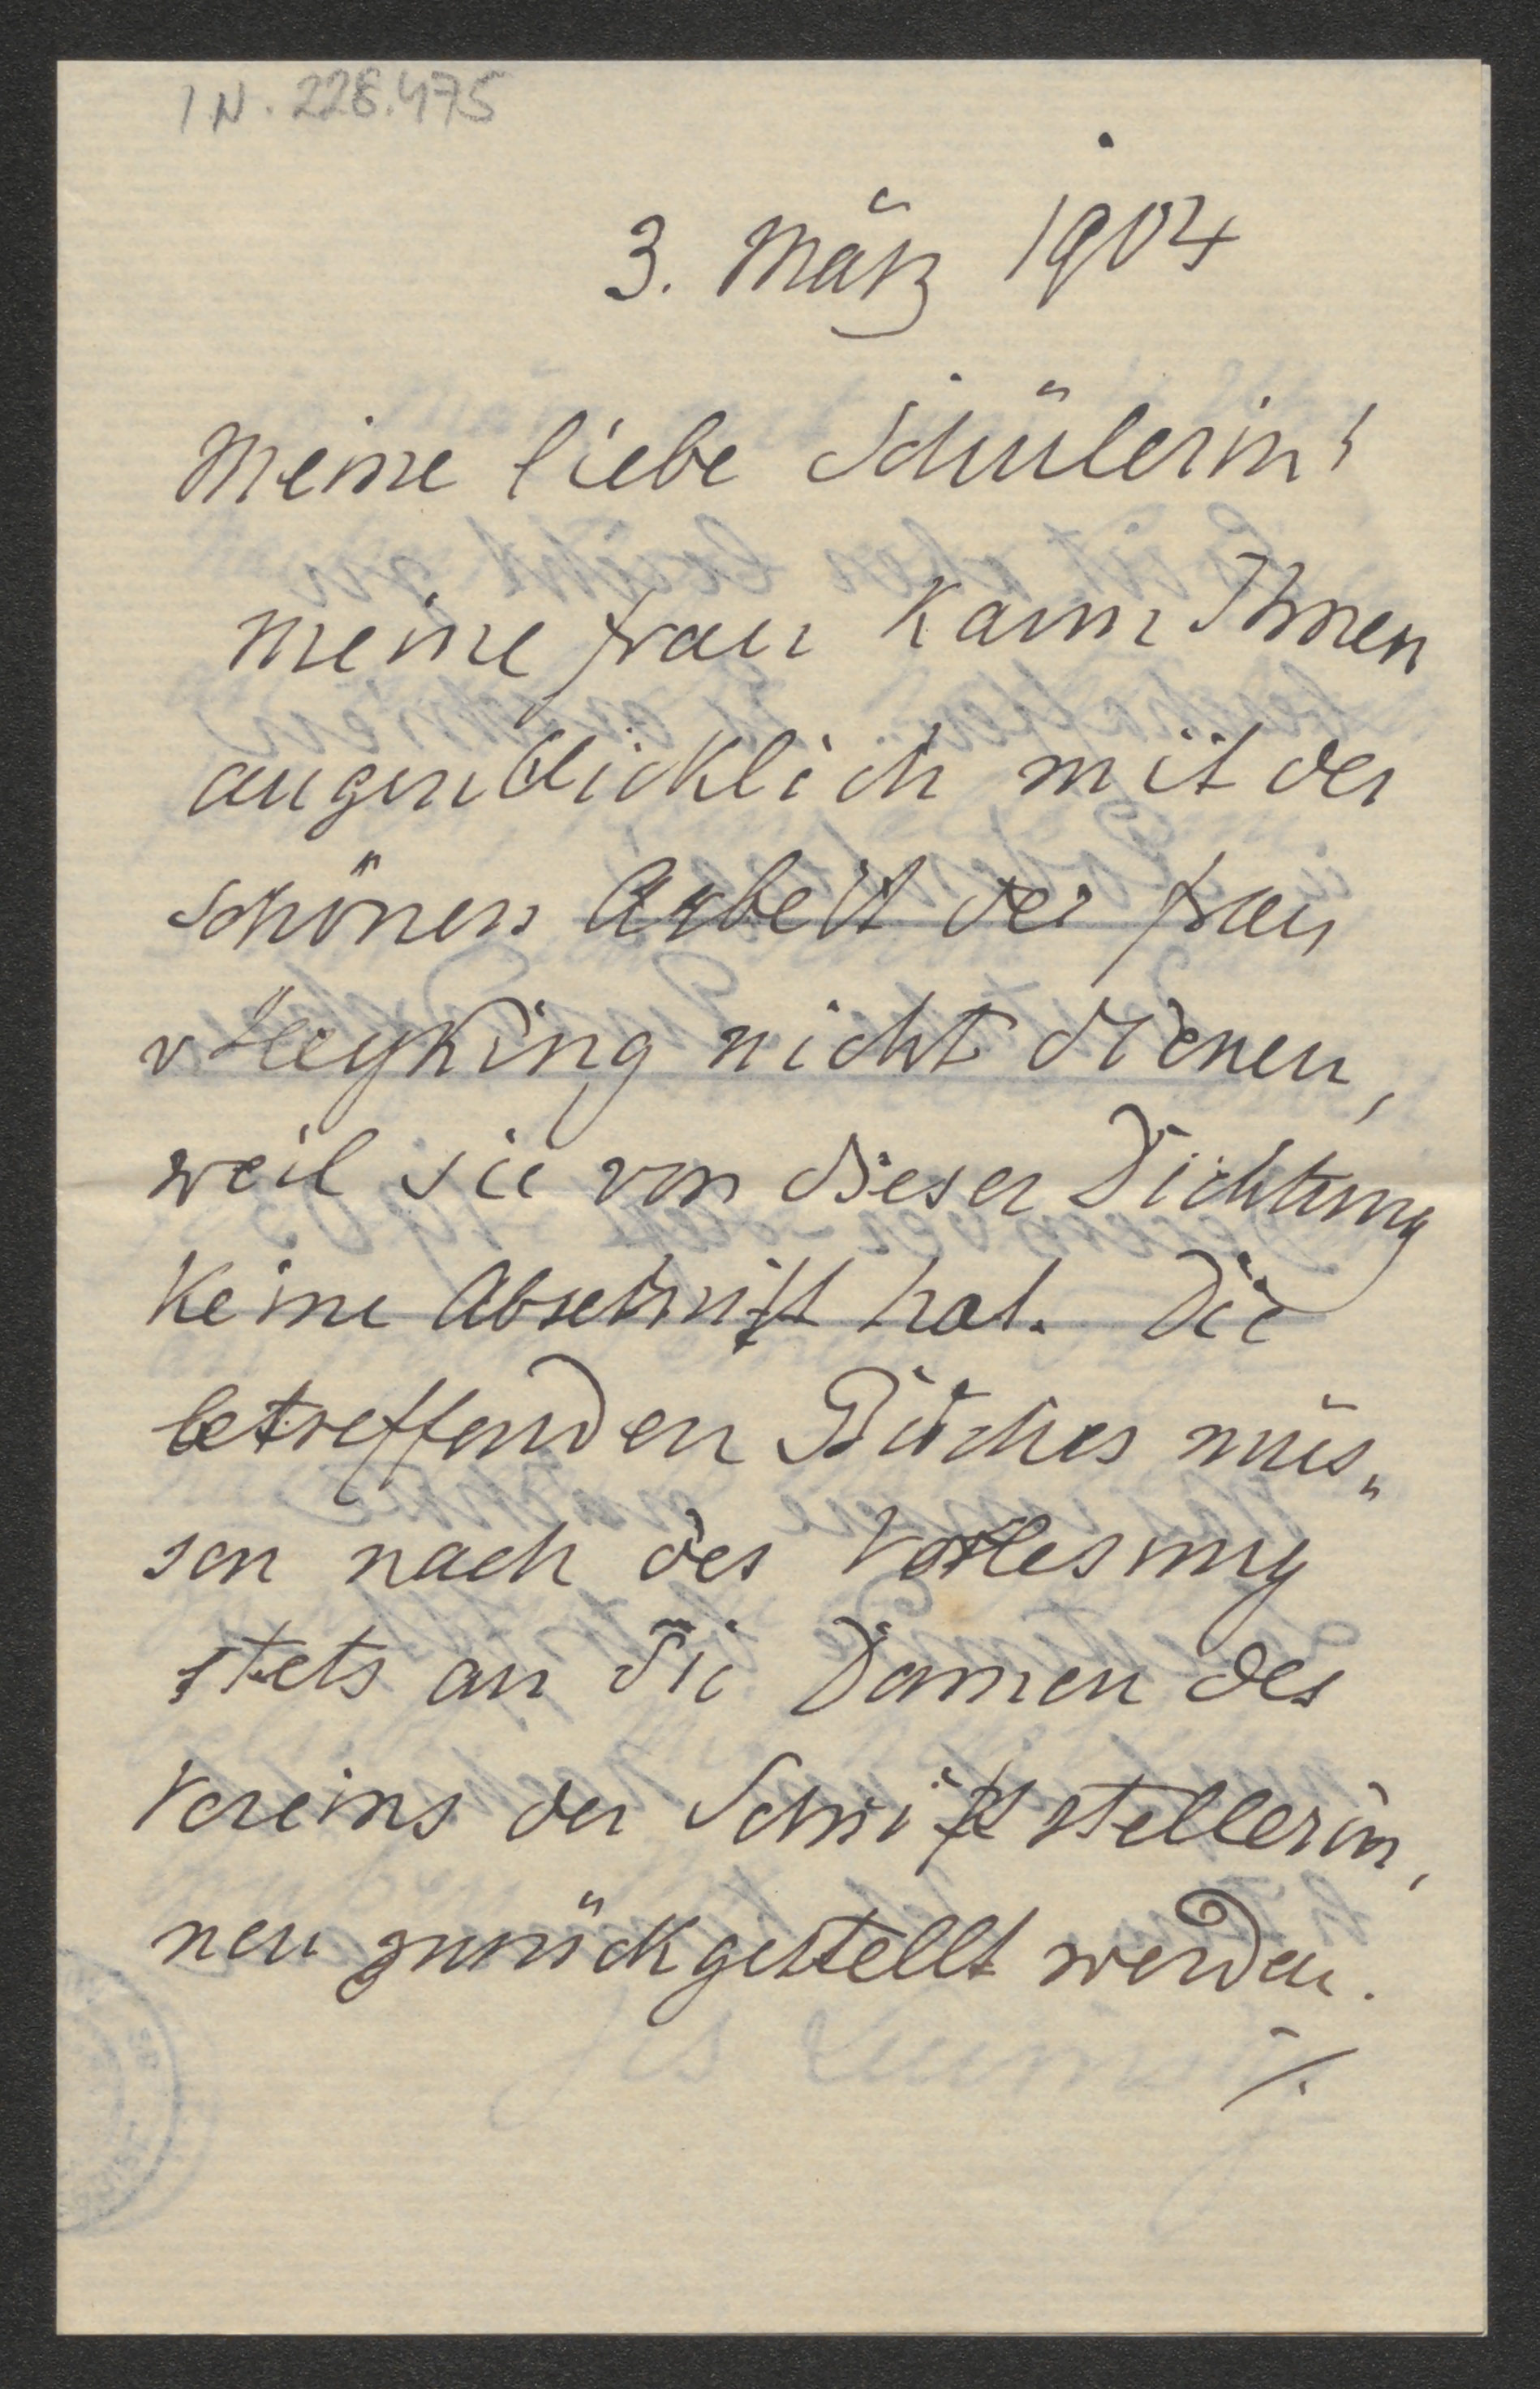 IN. 228.475
3. März 1904
Meine liebe Schülerin!
Meine Frau kann Ihnen
augenblicklich mit der
schönen Arbeit der Frau
v Heyking nicht dienen,
weil sie von dieser Dichtung
keine Abschrift hat. Die
betreffenden Bücher müs„
sen nach der Vorlesung
stets an die Damen des
Vereins der Schriftstellerin,
nen zurückgestellt werden.
./.